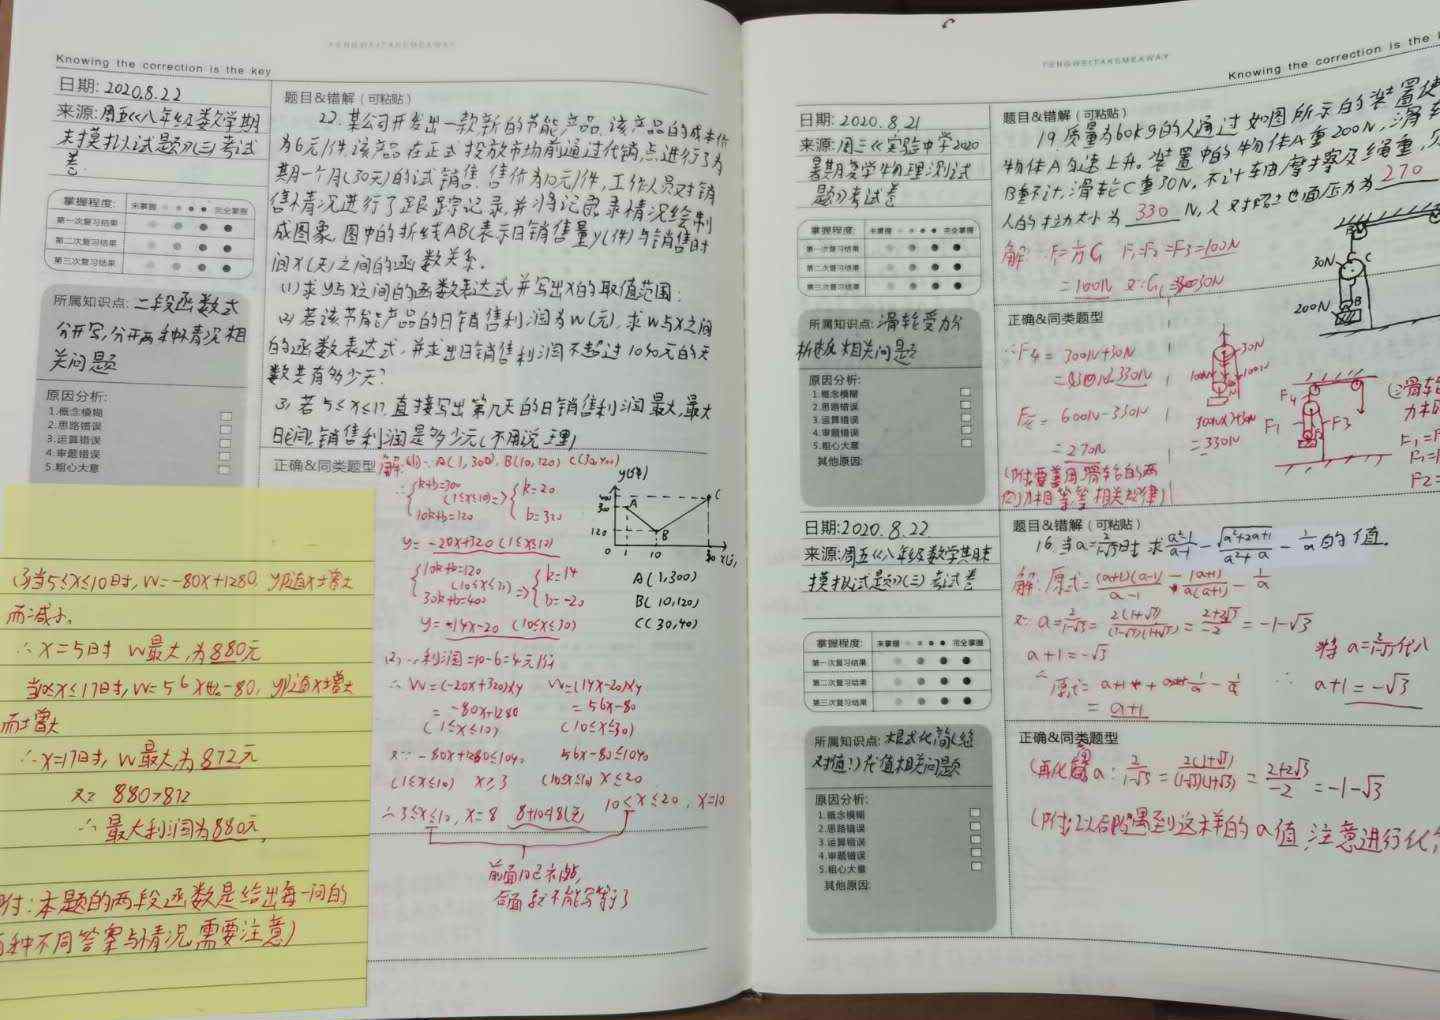 TENGWEITAKEMEAWAY
Knowing the correction is the key
日期: 2020.8.22
来源:周五《八年级数学期
末模拟试题》(三)考试
卷.
掌握程度: 未掌握 完全掌握
第一次复习结果
第二次复习结果
第三次复习结果
所属知识点:二段函数式
分开写,分开两种情况相
关问题
原因分析:
1.概念模糊
2.思路错误
3.运算错误
4.审题错误
5.粗心大意
题目&错解（可粘贴）
22.某公司开发出一款新的节能产品,该产品的成本价
为6元/件,该产品在正式投放市场前通过代销点进行了为
期一个月(30天)的试销售,售价为10元/件,工作人员对销
售情况进行了跟踪记录,并将记录情况绘制
成图象,图中的折线ABC表示日销售量y(件)与销售时
间x(天)之间的函数关系.
(1)求y与x之间的函数表达式并写出x的取值范围:
(2)若该节能产品的日销售利润为W(元),求W与x之间
的函数表达式,并求出日销售利润不超过1040元的天
数共有多少天?
(3)若5≤x≤17,直接写出第几天的日销售利润最大,最大
日销售利润是多少元(不用说理)
正确&同类题型
解:(1)∵A(1,300),B(10,120)
k+b=300
(1≤x≤10)⇒
10k+b=120
k=-20
b=320
y=-20x+320 (1≤x≤10)
10k+b=120
30k+b=400
k=14
b=-20
y=14x-20 (10≤x≤30)
y(件)
A
B
C
300
120
0 1 10 30
A(1,300)
B(10,120)
C(30,40)
(2)∵利润=10-6=4元/件
∴W=(-20x+320)×4 W=(14x-20)×4
=-80x+1280 =56x-80
(1≤x≤10) (10≤x≤30)
又∵-80x+1280≤1040 56x-80≤1040
(1≤x≤10) x≥3 x≤20
∴3≤x≤10, x=8 8+10=18(天) 10<x≤20, x=10
前面10已取,
后面就不能写等于了
(3)当5≤x≤10时,W=-80x+1280, y随x增大
而减小,
∴x=5时 W最大为880元
当10<x≤17时,W=56x-80, y随x增大
而增大
∴x=17时,W最大为872元
又∵ 880>872
∴最大利润为880元.
附:本题的两段函数是给出每一问的
两种不同答案与情况,需要注意)
TENGWEITAKEMEAWAY
Knowing the correction is the
日期: 2020.8.21
来源:周三《实验中学2020
暑期复学物理测试
题》考试卷
掌握程度: 未掌握 完全掌握
第一次复习结果
第二次复习结果
第三次复习结果
所属知识点:滑轮受力分
析相关问题
原因分析:
1.概念模糊
2.思路错误
3.运算错误
4.审题错误
5.粗心大意
其他原因:
题目&错解（可粘贴）
19.质量为60kg的人通过如图所示的装置使
物体A匀速上升.装置中的物体A重200N,滑轮
B重不计,滑轮C重30N,不计轴摩擦及绳重,
人的拉力大小为 330 N,人对地面压力为 270
30N
C
B
200N
A
正确&同类题型
∴F4=300N+30N
=330N
=600N-330N
=270N
=330N
F4
F1
F3
F2=
日期:2020.8.22
来源:周五《八年级数学期末
模拟试题》(三)考试卷
掌握程度: 未掌握 完全掌握
第一次复习结果
第二次复习结果
第三次复习结果
所属知识点:根式化简(绝
对值)
原因分析:
1.概念模糊
2.思路错误
3.运算错误
4.审题错误
5.粗心大意
其他原因:
题目&错解（可粘贴）
16.当a=2/(1-√3)时,求(a²-1)/(a-1)-√(a²+2a+1)/(a²+a)-1/a的值.
解:原式=(a+1)(a-1)/(a-1)-|a+1|/(a(a+1))-1/a
又∵a=2/(1-√3)=2(1+√3)/((1-√3)(1+√3))=(2+2√3)/(-2)=-1-√3
a+1=-√3
将a=2/(1-√3)代入
∴原式=a+1+1/a-1/a
=a+1
∴a+1=-√3
正确&同类题型
a:2/(1-√3)=2(1+√3)/((1-√3)(1+√3))=(2+2√3)/(-2)=-1-√3
(附:以后遇到这样的a值,注意进行化